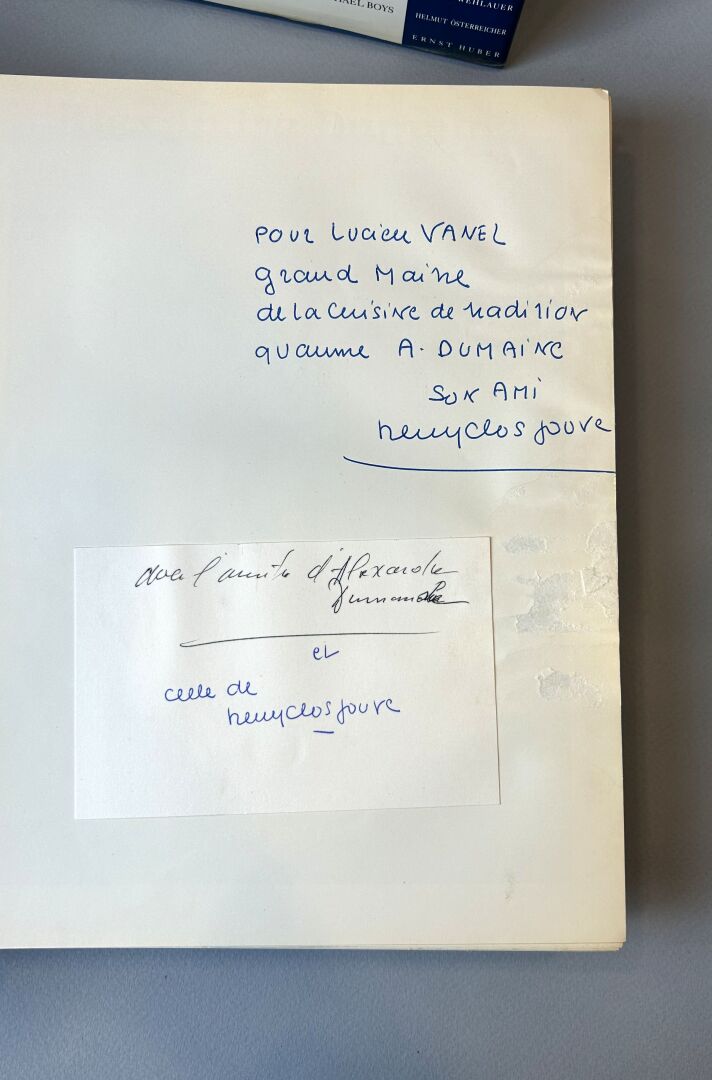 HAEL BOYS
EHLAUER
HELMUT ÖSTERREICHER
ERNST HUBER
POUR LUCIEN VANEL
grand Maitre
de La Cuisine de tradition
qu'aime A. DUMAINE
SON AMI
henry Clos Jouve
avec l'amitié d'Alexandre
Dumaine
et
celle de
henry Clos Jouve